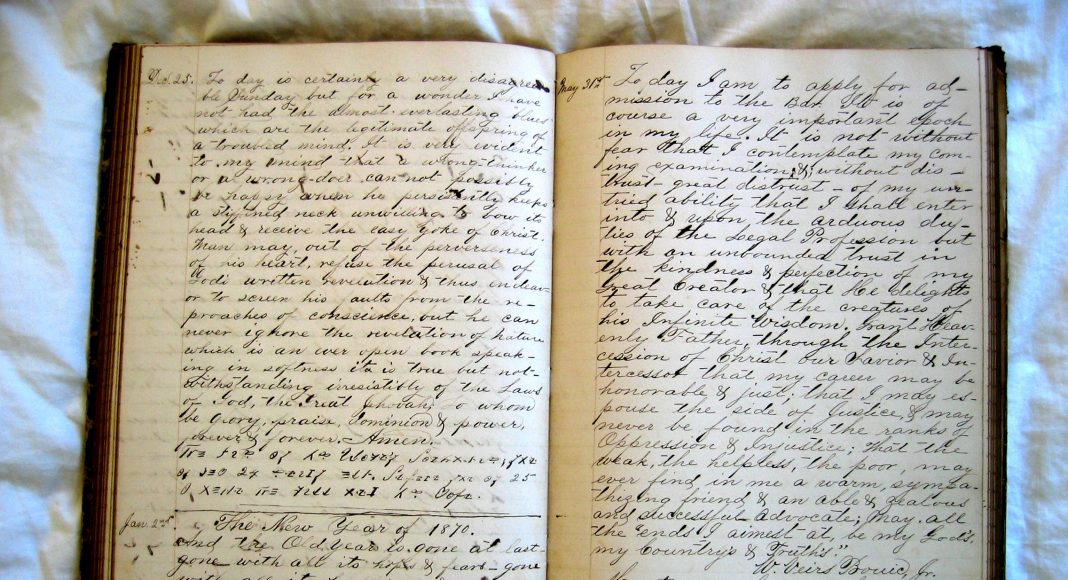 Dec. 25. To day is certainly a very disagrea-
ble Sunday but for a wonder I have
not had the almost everlasting blues
which are the legitimate offspring of
a troubled mind. It is very evident
to my mind that a wrong-thinker
or a wrong-doer can not possibly
be happy when he persistently keeps
a stiffined neck unwilling to bow its
head & receive the easy yoke of Christ.
Man may, out of the perverseness
of his heart, refuse the perusal of
God's written revelation & thus endeav-
or to screen his faults from the re-
proaches of conscience, but he can
never ignore the revelation of nature
which is an ever open book speak-
ing in softness it is true but not-
withstanding irresistibly of the Laws
of God, the Great Jehovah; to whom
be Glory, praise, Dominion & power,
forever & forever. - Amen.
of 25
Jan. 2nd. The New Year of 1870.
and the Old Year is gone at last-
gone with all its hopes & fears - gone
with all its
May 31st To day I am to apply for ad-
mission to the Bar. It is of
course a very important epoch
in my life. It is not without
fear that I contemplate my com-
ing examination, & without dis-
trust - great distrust - of my un-
tried ability that I shall enter
into & upon the arduous du-
ties of the Legal Profession but
with an unbounded trust in
the kindness & perfection of my
Great Creator & that He delights
to take care of the creatures of
his Infinite Wisdom. Grant Heav-
enly Father, through the Inter-
cession of Christ our Savior & In-
tercessor that my career may be
honorable & just; that I may es-
pouse the side of Justice, & may
never be found in the ranks of
Oppression & Injustice; that the
weak, the helpless, the poor, may
ever find in me a warm, sympa-
thizing friend & an able & zealous
and successful advocate; may all
the ends I aimest at, be my God's
my Country's & Truth's."
W. Veirs Bouic, Jr.